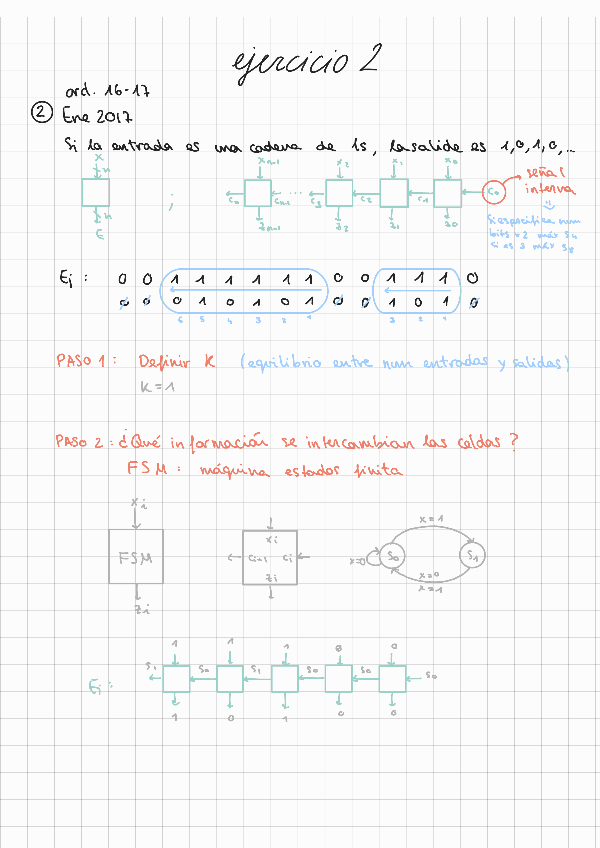 ejercicio 2
ord. 16-17
② Ene 2017
Si la entrada es una cadena de 1s, la salida es 1,0,1,0,...
x n z n ;
xn-1 x2 x1 x0
cn cn-1 ... c3 c2 c1 c0
zn-1 z2 z1 z0
señal
interna
Si especifica num
bits = 2 máx S4
si es 3 máx S8
Ej : 0 0 1 1 1 1 1 1 0 0 1 1 1 0
0 0 0 1 0 1 0 1 0 0 1 0 1 0
6 5 4 3 2 1 3 2 1
PASO 1 : Definir K (equilibrio entre num entradas y salidas)
K = 1
PASO 2 : ¿Qué información se intercambian las celdas ?
FSM : máquina estados finita
xi FSM zi
xi ci+1 ci zi
x=1
x=0 S0 S1
x=0
x=1
1 1 1 0 0
S1 S0 S1 S0 S0 S0
Ej :
1 0 1 0 0